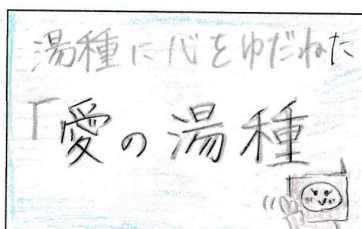 湯種に心をゆだねた
「愛の湯種」